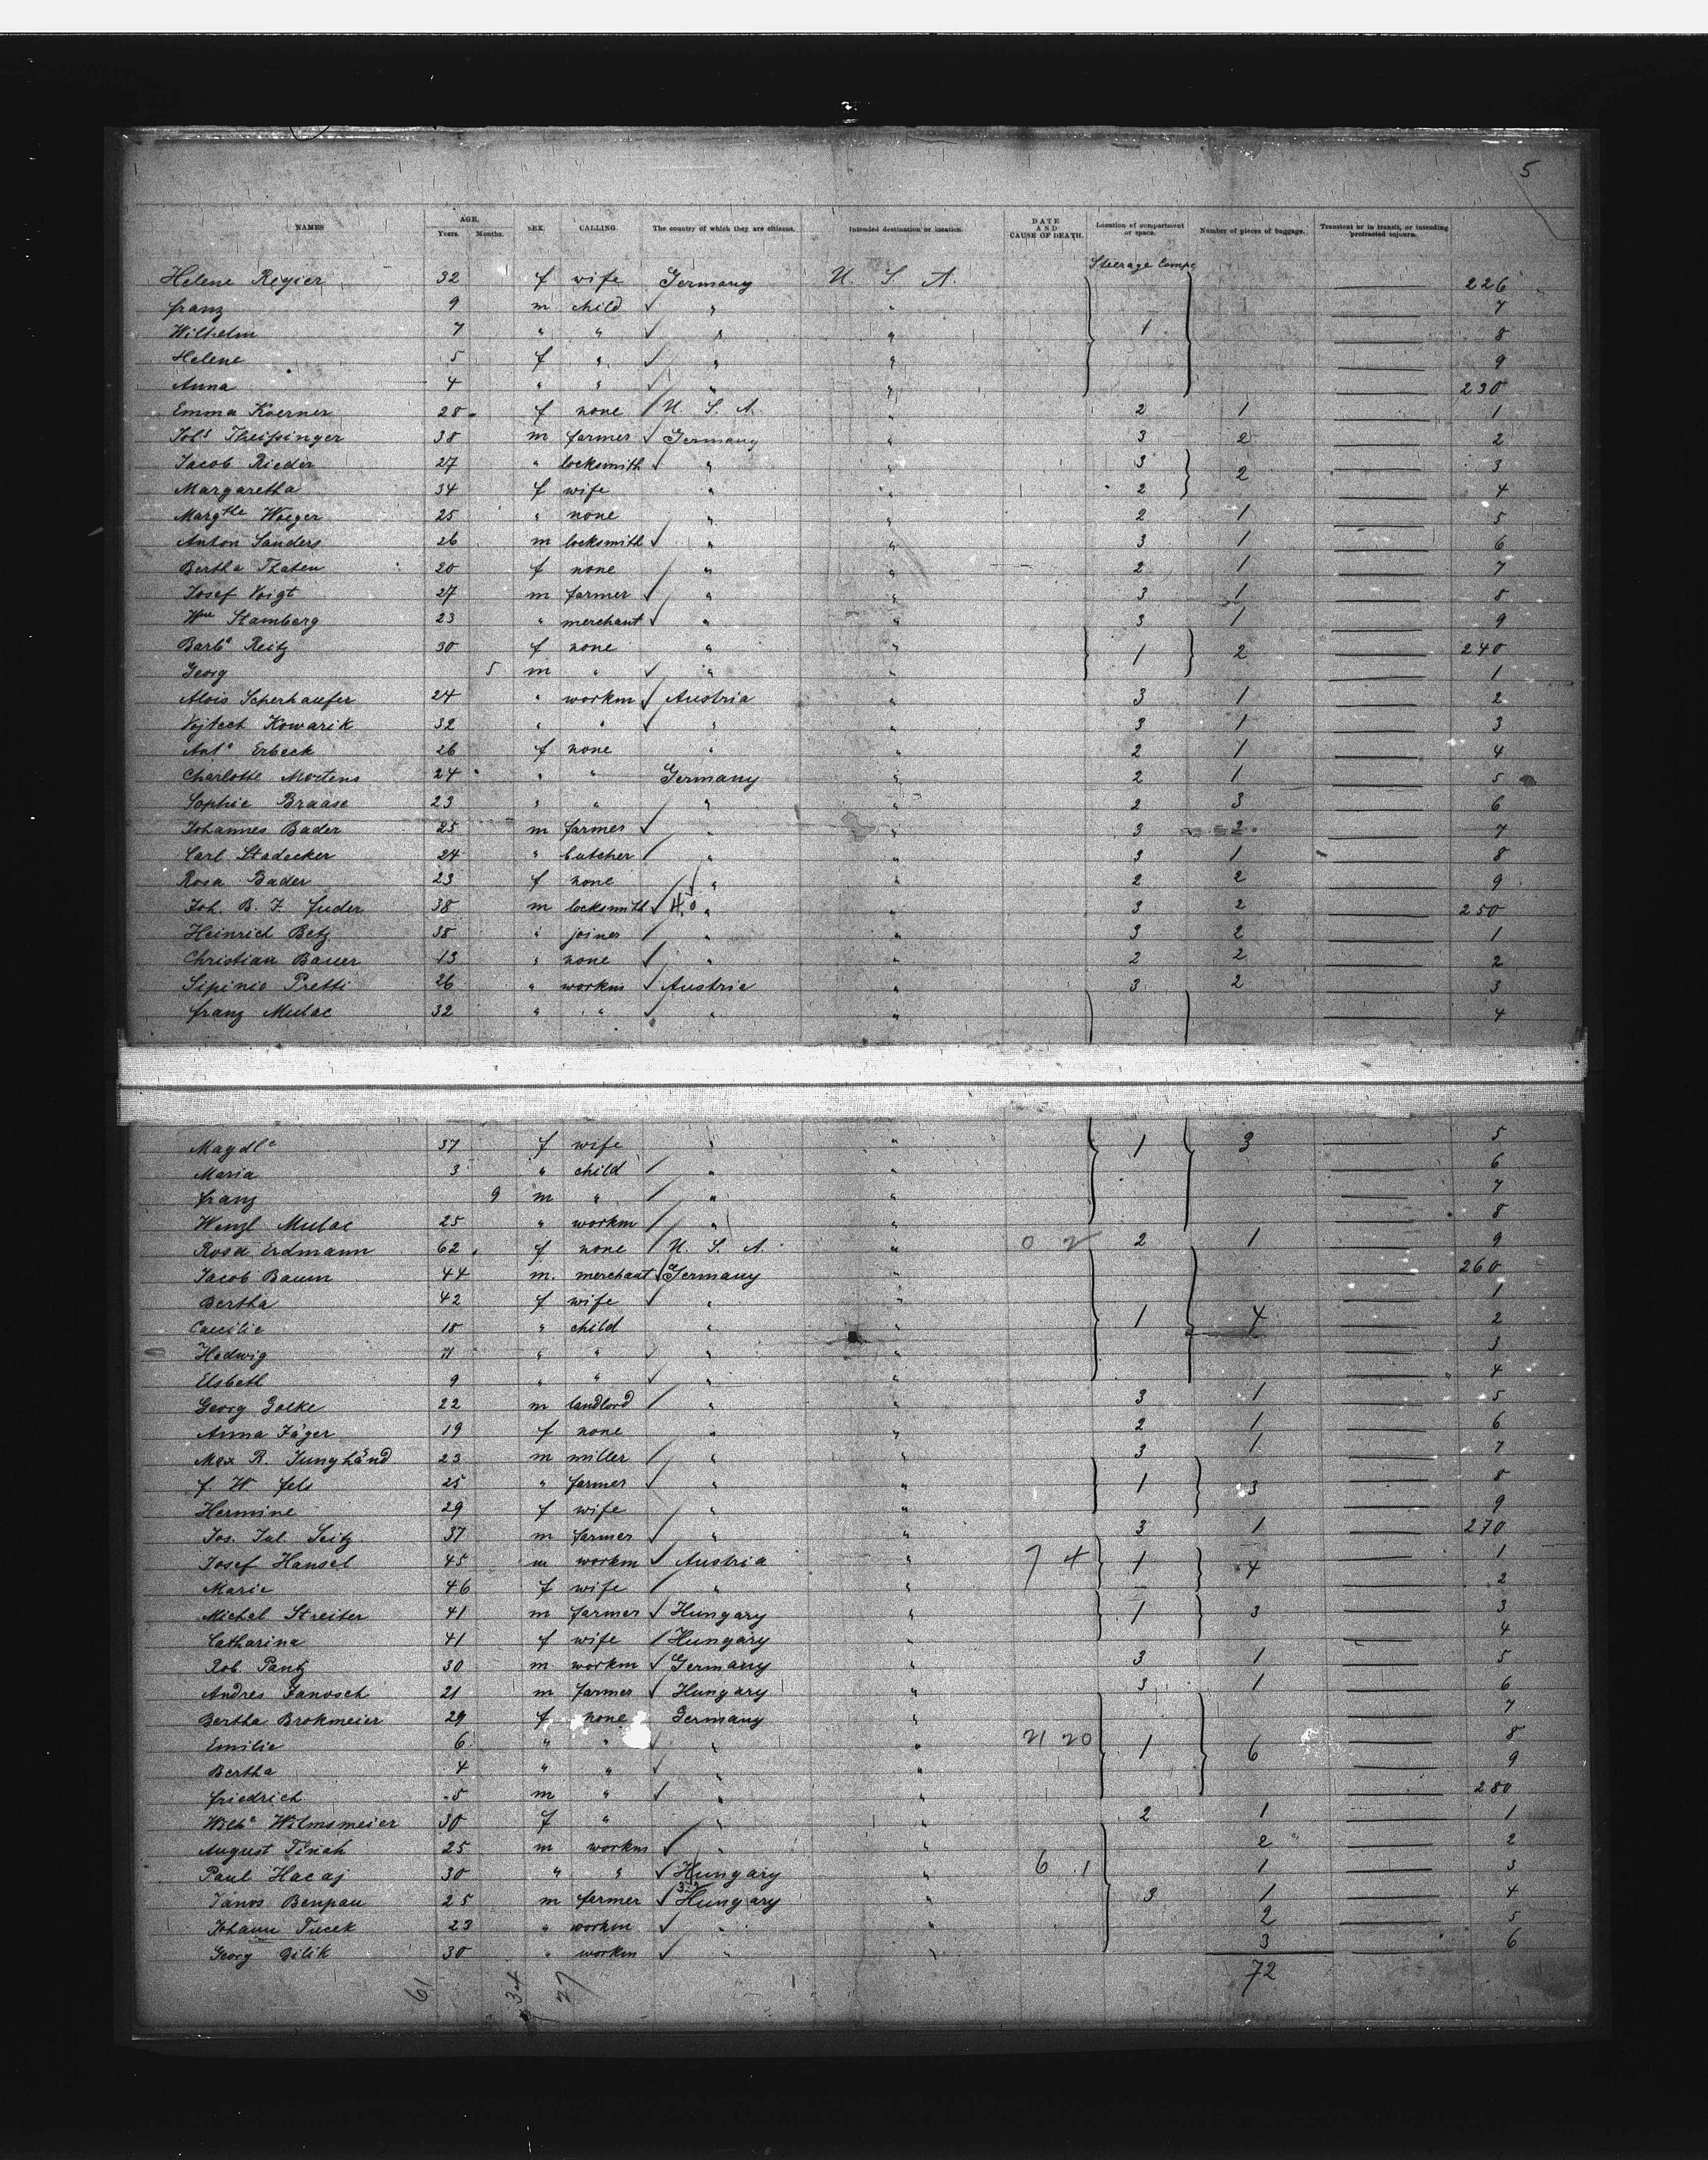 5
NAMES AGE, Years. Months. SEX. CALLING. The country of which they are citizens. Intended destination or location. DATE AND CAUSE OF DEATH. Location of compartment or space. Number of pieces of baggage. Transient or in transit, or intending protracted sojourn.
Steerage Comp
Helene Regier 32 f wife Germany U. S. A. 226
franz 9 m child " " 7
Wilhelm 7 " " " " 1 8
Helene 5 f " " " 9
Anna 4 " " " " 230
Emma Koerner 28 f none U. S. A. " 2 1 1
Johs Theißinger 38 m farmer Germany " 3 2 2
Jacob Rieder 27 " locksmith " " 3 2 3
Margaretha 34 f wife " " 2 4
Margthe Woeger 25 " none " " 2 1 5
Anton Sanders 26 m locksmith " " 3 1 6
Bertha Thaten 20 f none " " 2 1 7
Josef Voigt 27 m farmer " " 3 1 8
Wm Stamberg 23 " merchant " " 3 1 9
Barba Reitz 30 f none " " 1 2 240
Georg 5 m " " " 1
Alois Scherhaufer 24 " workm Austria " 3 1 2
Vojtech Kowarik 32 " " " " 3 1 3
Anta Erbeck 26 f none " " 2 1 4
Charlotte Mertens 24 " " Germany " 2 1 5
Sophie Braase 23 " " " " 2 3 6
Johannes Bader 25 m farmer " " 3 2 7
Carl Stadecker 24 " butcher " " 3 1 8
Rosa Bader 23 f none " " 2 2 9
Joh. B. F. fuder 38 m locksmith " " 3 2 250
Heinrich Betz 38 " joiner " " 3 2 1
Christian Bauer 13 " none " " 2 2 2
Sipinio Pretti 26 " workm Austria " 3 2 3
franz Mulac 32 " " " " 4
Magdla 37 f wife " " 1 3 5
Maria 3 " child " " 6
franz 9 m " " " 7
Wenzl Mulac 25 " workm " 8
Rosa Erdmann 62 f none U. S. A. " 0 2 2 1 9
Jacob Baum 44 m. merchant Germany " 260
Bertha 42 f wife " " 1
Caecilie 18 " child " " 1 4 2
Hedwig 11 " " " " 3
Elsbeth 9 " " " " 4
Georg Golke 22 m landlord " " 3 1 5
Anna Jäger 19 f none " " 2 1 6
Max R. Junghänd 23 m miller " " 3 1 7
f. W fels 25 " farmer " " 1 3 8
Hermine 29 f wife " " 9
Jos. Jul. Seitz 37 m farmer " " 3 1 270
Josef Hansel 45 m workm Austria " 7 4 1 4 1
Marie 46 f wife " " 2
Michel Streiter 41 m farmer Hungary " 1 3 3
Catharina 41 f wife Hungary " 4
Rob. Pantz 30 m workm Germany " 3 1 5
Andres Janosch 21 m farmer Hungary " 3 1 6
Bertha Brokmeier 29 f none Germany " 7
Emilie 6 " " " " 21 20 1 6 8
Bertha 4 " " " " 9
friedrich 5 m " " " 280
Wilha Wilmsmeier 30 f " " " 2 1 1
August Finah 25 m workm " " 2 2
Paul Hacaj 30 " " Hungary " 6 1 1 3
János Benpau 25 m farmer Hungary " 3 1 4
Johann Tucek 23 " workm " " 2 5
Georg Bilik 30 " workm " " 3 6
72
61 34 27